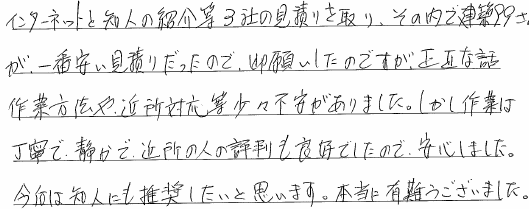 インターネットと知人の紹介等3社の見積りを取り、その内で建築99さ
が、一番安い見積りだったので、御願いしたのですが、正直な話
作業方法や、近所対応等少々不安がありました。しかし作業は
丁寧で、静かで、近所の人の評判も良好でしたので、安心しました。
今后は知人にも推奨したいと思います。本当に有難うございました。